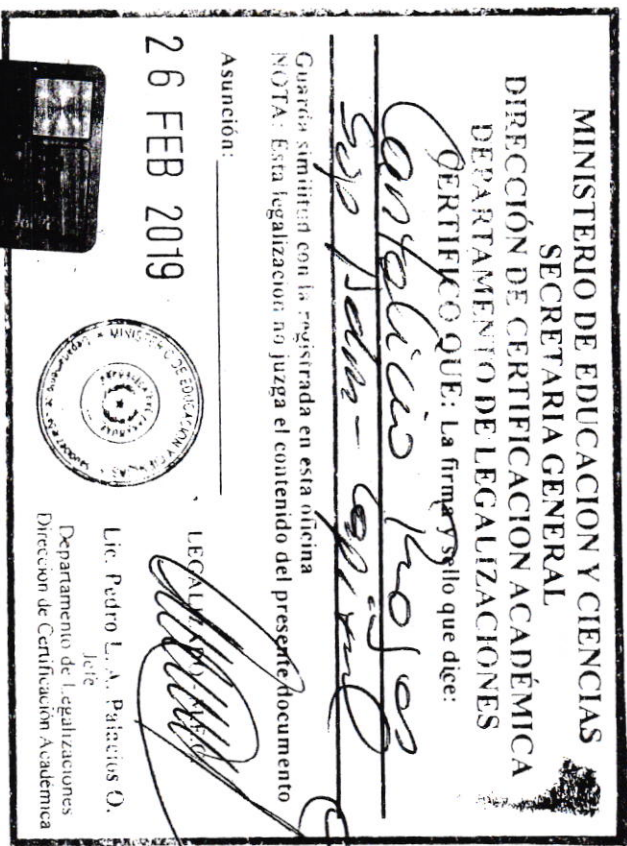 MINISTERIO DE EDUCACION Y CIENCIAS
SECRETARIA GENERAL
DIRECCIÓN DE CERTIFICACION ACADÉMICA
DEPARTAMENTO DE LEGALIZACIONES
CERTIFICO QUE: La firma y sello que dice:
Rojas
Guarda similitud con la registrada en esta oficina
NOTA: Esta legalizacion no juzga el contenido del presente documento
Asunción:
26 FEB 2019
MINISTERIO DE EDUCACION Y CIENCIAS
LEGALIZADO
Lic. Pedro L. A. Palacios O.
Jefe
Departamento de Legalizaciones
Dirección de Certificación Académica